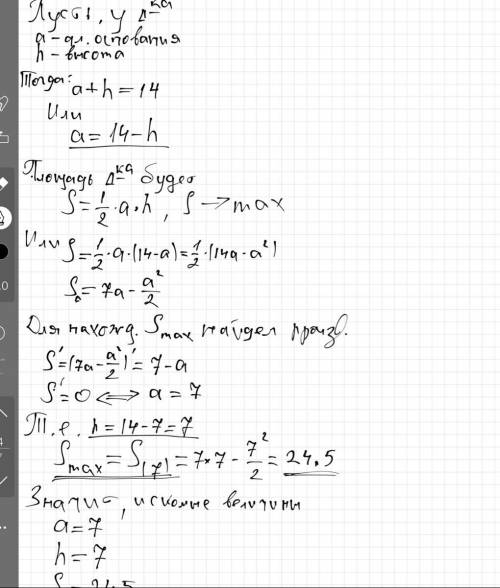 Пусть, у Δ^ка
a - дл. основания
h - высота
Тогда: a+h=14
Или
a = 14-h
Площадь Δ^ка будет
S = 1/2 · a · h, S → max
Или S = 1/2 · a · (14-a) = 1/2 · (14a - a²)
S = 7a - a²/2
Для нахожд. Smax найдем произв.
S' = (7a - a²/2)' = 7 - a
S' = 0 ⟺ a = 7
Т.е. h = 14-7 = 7
Smax = S(7) = 7×7 - 7²/2 = 24.5
Значит, искомые величины
a = 7
h = 7
S = 24.5